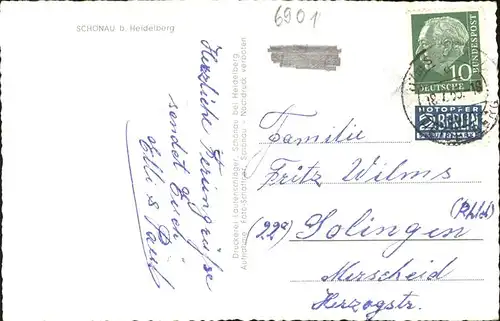 6901
SCHÖNAU b. Heidelberg
Herzliche Feriengrüsse
sendet Euch
Elli & Paul
Druckerei Lautenschläger, Schönau bei Heidelberg
Aufnahme: Foto-Schäfer, Schönau · Nachdruck verboten
10
DEUTSCHE
BUNDESPOST
NOTOPFER
2 BERLIN
STEUERMARKE
Familie
Fritz Wilms
(22a) Solingen (Rhld)
Merscheid
Herzogstr.